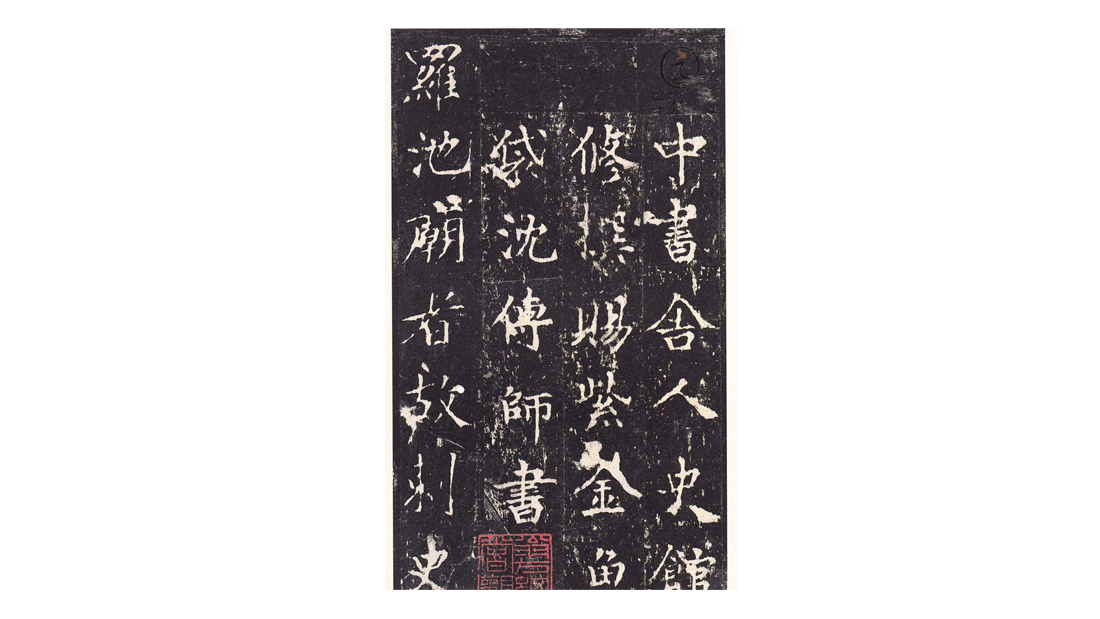 中書舍人史館
修撰賜紫金魚
袋沈傳師書
羅池廟者故刺史